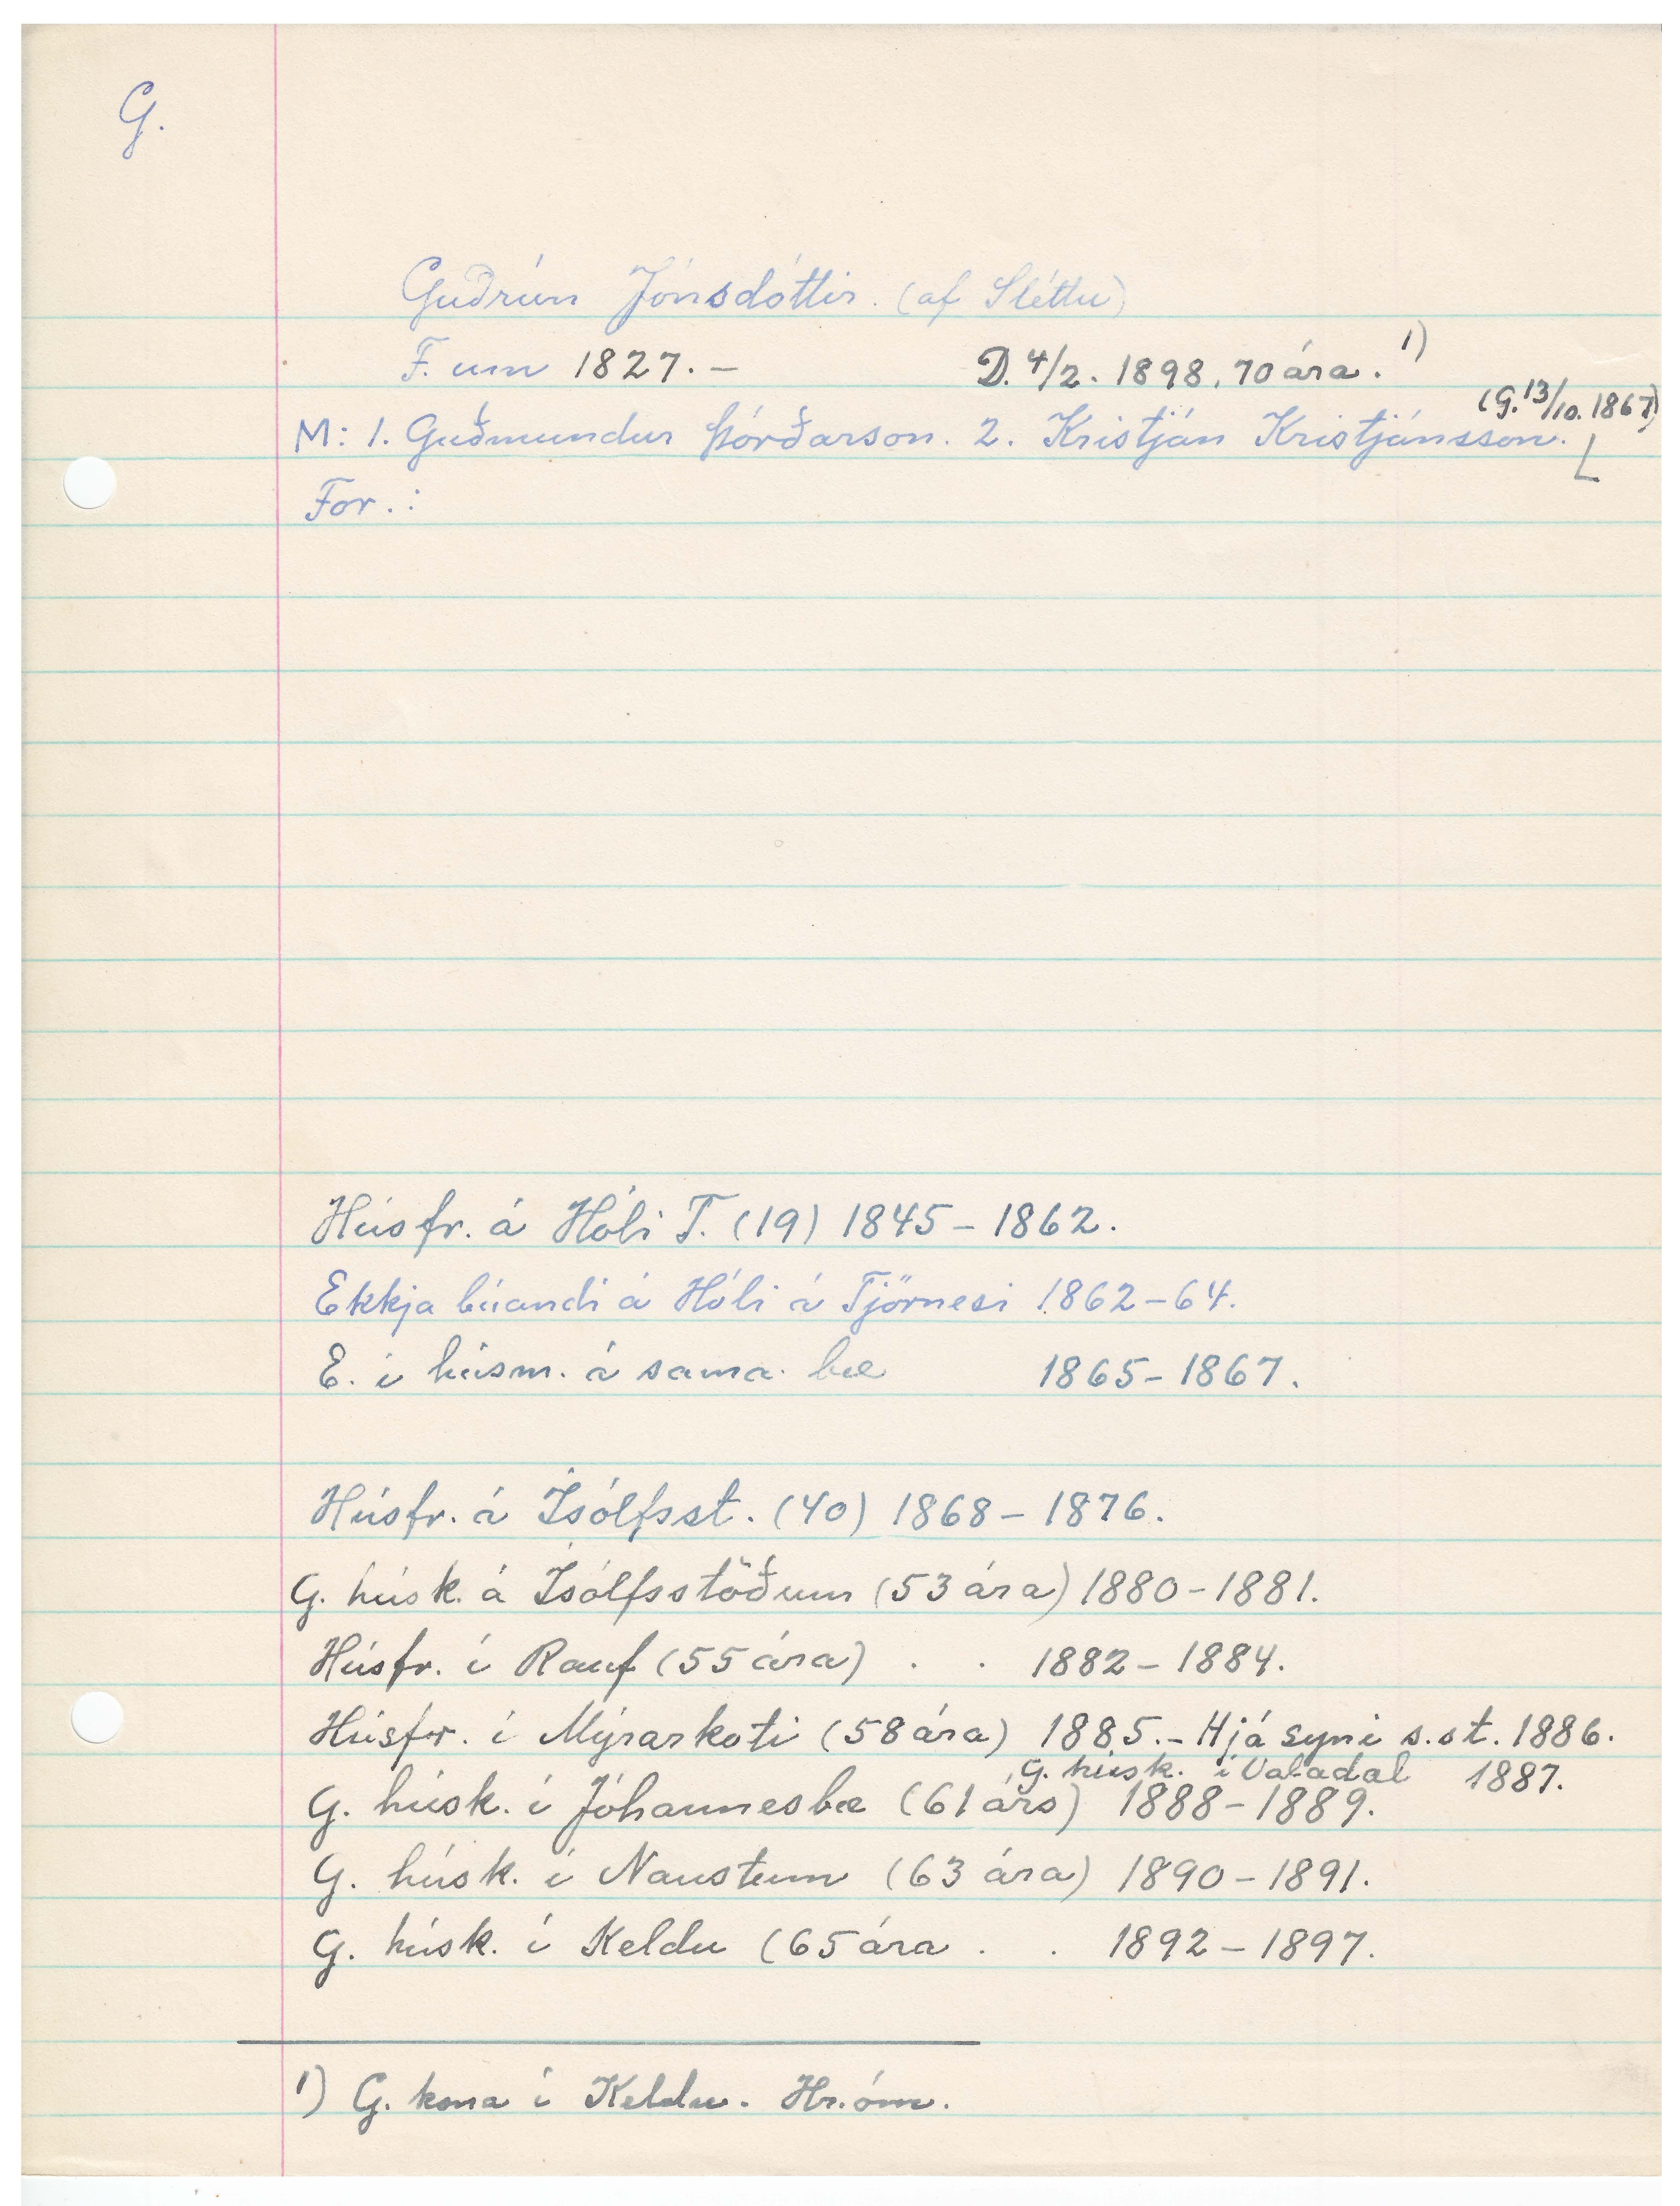 G.
Guðrún Jónsdóttir. (af Sléttu)
F. um 1827. – D. 4/2. 1898, 70 ára. 1)
(G. 13/10. 1867)
M: 1. Guðmundur Þórðarson. 2. Kristján Kristjánsson.
For.:
Húsfr. á Hóli T. (19) 1845 – 1862.
Ekkja búandi á Hóli á Tjörnesi 1862 – 64.
E. í húsm. á sama bæ 1865 – 1867.
Húsfr. á Ísólfsst. (40) 1868 – 1876.
G. húsk. á Ísólfsstöðum (53 ára) 1880 – 1881.
Húsfr. í Rauf (55 ára) . . 1882 – 1884.
Húsfr. í Mýrarkoti (58 ára) 1885. – Hjá syni s.st. 1886.
G. húsk. í Valadal 1887.
G. húsk. í Jóhannesbæ (61 árs) 1888 – 1889.
G. húsk. í Naustum (63 ára) 1890 – 1891.
G. húsk. í Keldu (65 ára . . 1892 – 1897.
1) G. kona í Keldu. Hr. óm.